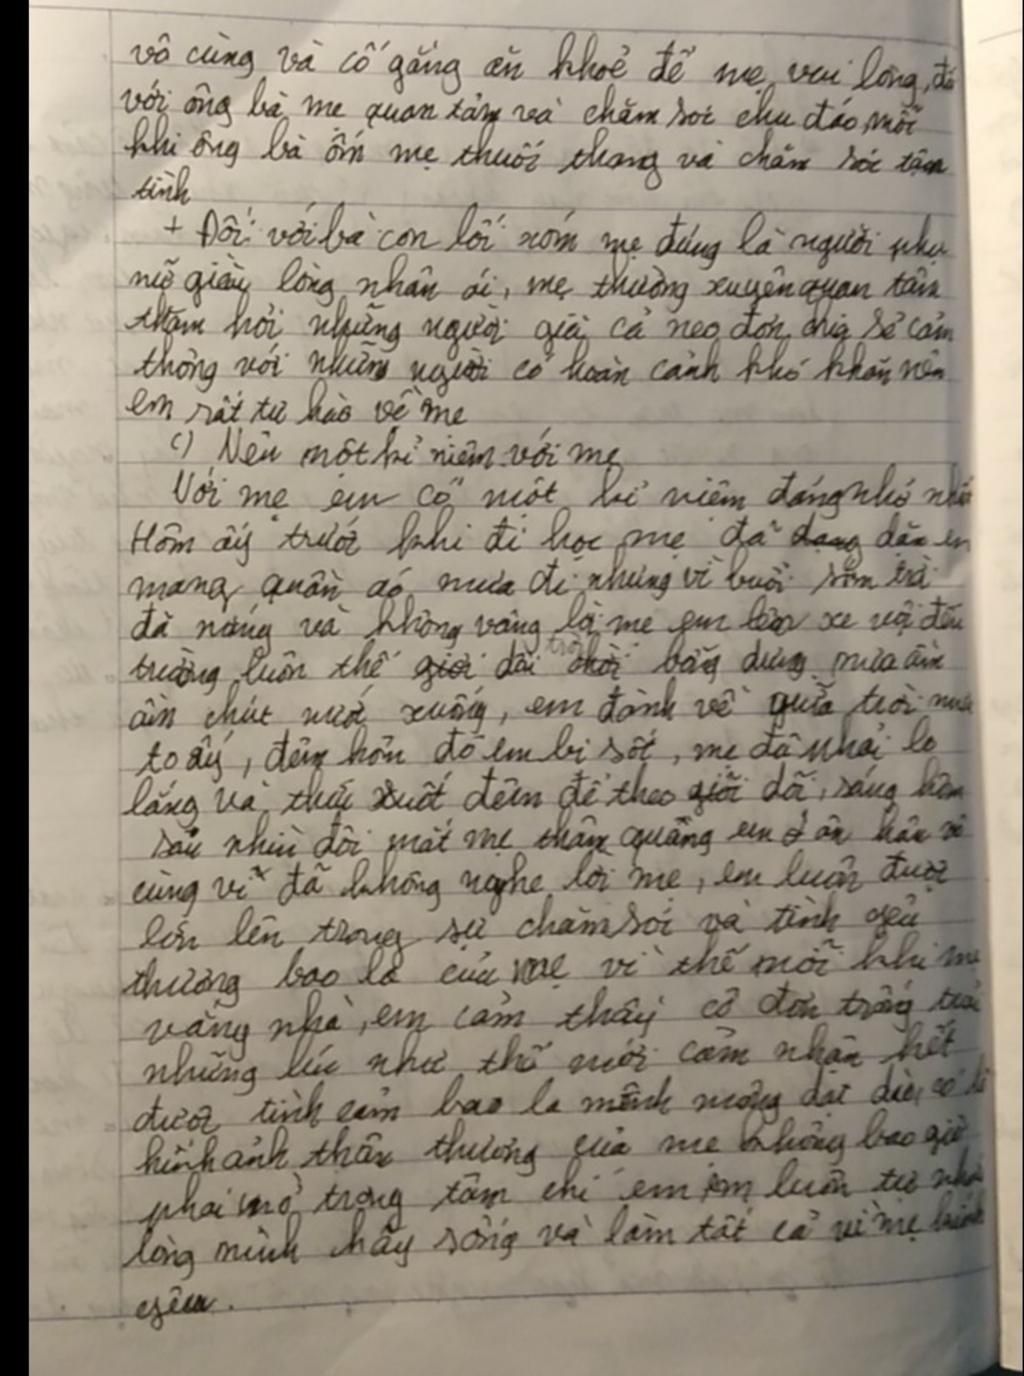 vô cùng và cố gắng ăn khoẻ để mẹ vui lòng, đối
với ông bà mẹ quan tâm và chăm sóc chu đáo, mỗi
khi ông bà ốm mẹ thuốc thang và chăm sóc tận
tình
+ Đối với bà con lối xóm mẹ đúng là người phụ
nữ giàu lòng nhân ái, mẹ thường xuyên quan tâm
thăm hỏi những người già cả neo đơn chia sẻ cảm
thông với những người có hoàn cảnh khó khăn nên
em rất tự hào về mẹ
c) Nêu một kỉ niệm với mẹ
Với mẹ em có một kỉ niệm đáng nhớ nhất
Hôm ấy trước khi đi học mẹ đã dặn em
mang quần áo mưa đi nhưng vì buổi sớm trời
đã nóng và không vâng lời mẹ em lên xe vội đến
trường luôn thế rồi trời bỗng dưng mưa ầm
ầm chút nước xuống, em đành về giữa trời mưa
to ấy, đêm hôm đó em bị sốt, mẹ đã phải lo
lắng và thức suốt đêm để theo dõi, sáng hôm
sau nhìn đôi mắt mẹ thâm quầng em ân hận vô
cùng vì đã không nghe lời mẹ, em luôn được
lớn lên trong sự chăm sóc và tình yêu
thương bao la của mẹ vì thế mỗi khi mẹ
vắng nhà, em cảm thấy cô đơn trống trải
những lúc như thế mới cảm nhận hết
được tình cảm bao la mênh mông dạt dào, có lẽ
hình ảnh thân thương của mẹ không bao giờ
phai mờ trong tâm chí em em luôn tự nhủ
lòng mình hãy sống và làm tất cả vì mẹ kính
yêu.